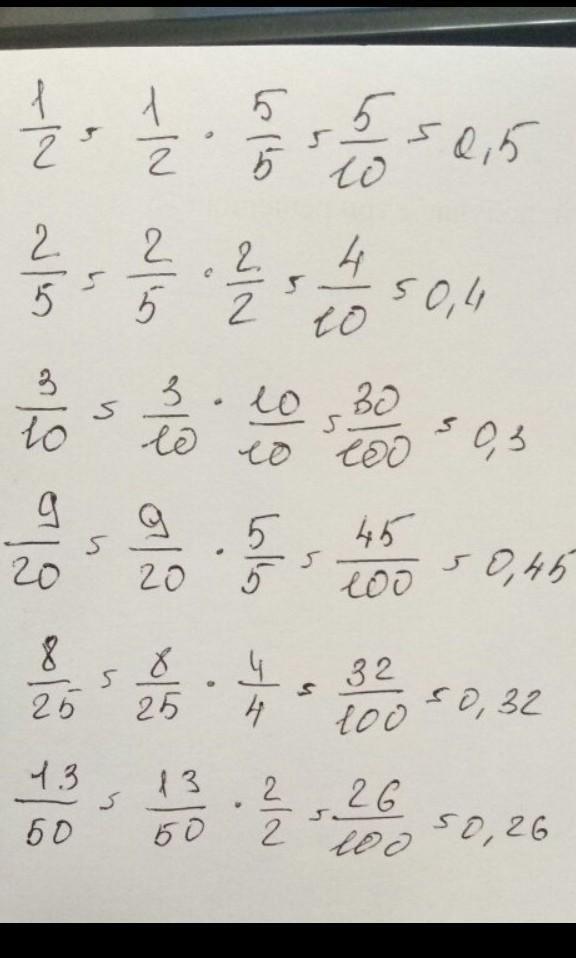 1/2 = 1/2 · 5/5 = 5/10 = 0,5
2/5 = 2/5 · 2/2 = 4/10 = 0,4
3/10 = 3/10 · 10/10 = 30/100 = 0,3
9/20 = 9/20 · 5/5 = 45/100 = 0,45
8/25 = 8/25 · 4/4 = 32/100 = 0,32
13/50 = 13/50 · 2/2 = 26/100 = 0,26